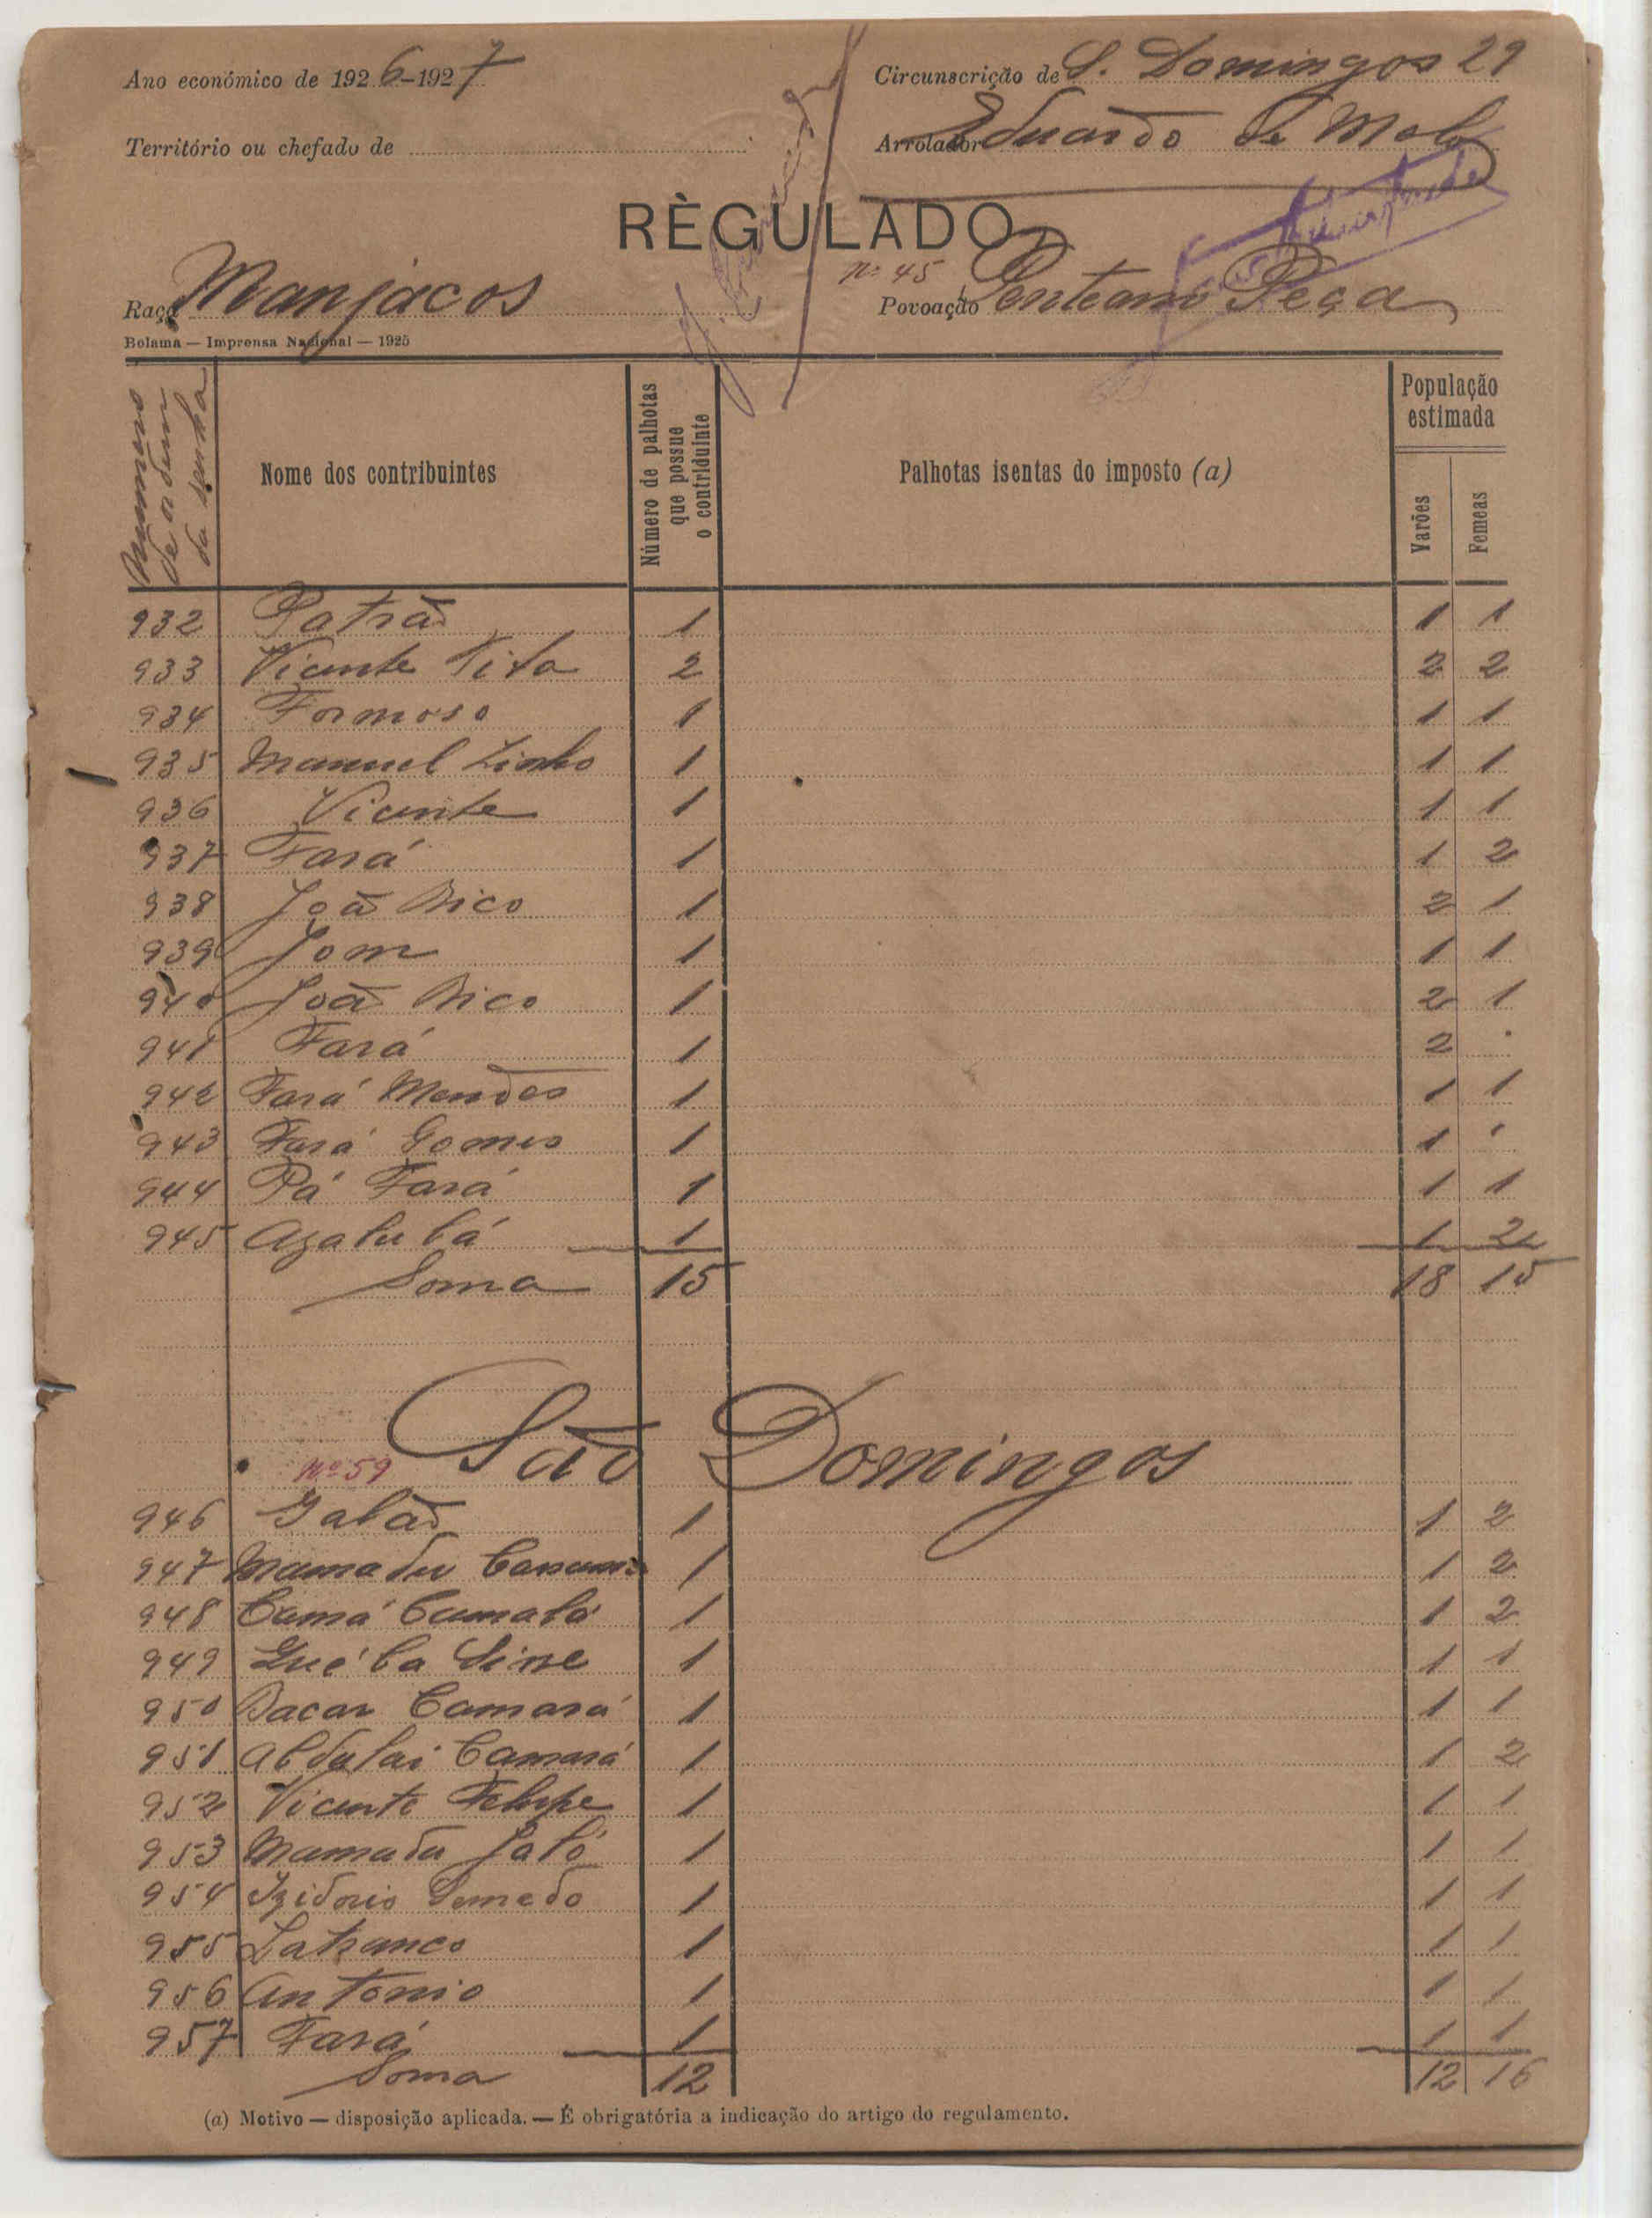 Ano económico de 1926-1927
Circunscrição de S. Domingos 29
Território ou chefado de
Arrolador Eduardo de Melo
RÈGULADO
Nº 45
Raça Manjacos
Povoação Peça
Bolama — Imprensa Nacional — 1925
Numero de ordem da senha
Nome dos contribuintes
Número de palhotas que possue o contriduinte
Palhotas isentas do imposto (a)
População estimada
Varões Femeas
932 Patrão 1 1 1
933 Vicente Tita 2 2 2
934 Formoso 1 1 1
935 Manuel 1 1 1
936 Vicente 1 1 1
937 Fará 1 1 2
938 João Bico 1 2 1
939 Jom 1 1 1
940 João Bico 1 2 1
941 Fará 1 2 .
942 Fará Mendes 1 1 1
943 Fará Gomes 1 1 .
944 Pá Fará 1 1 1
945 1 1 2
Soma 15 18 15
São Domingos
Nº 59
946 Galão 1 1 2
947 Mamadu 1 1 2
948 Camá 1 1 2
949 1 1 1
950 Bacar Camará 1 1 1
951 Abdulai Camará 1 1 2
952 Vicente Felipe 1 1 1
953 Mamadu Jaló 1 1 1
954 Izidorio Semedo 1 1 1
955 Latranco 1 1 1
956 Antonio 1 1 1
957 Fará 1 1 1
Soma 12 12 16
(a) Motivo — disposição aplicada. — É obrigatória a indicação do artigo do regulamento.